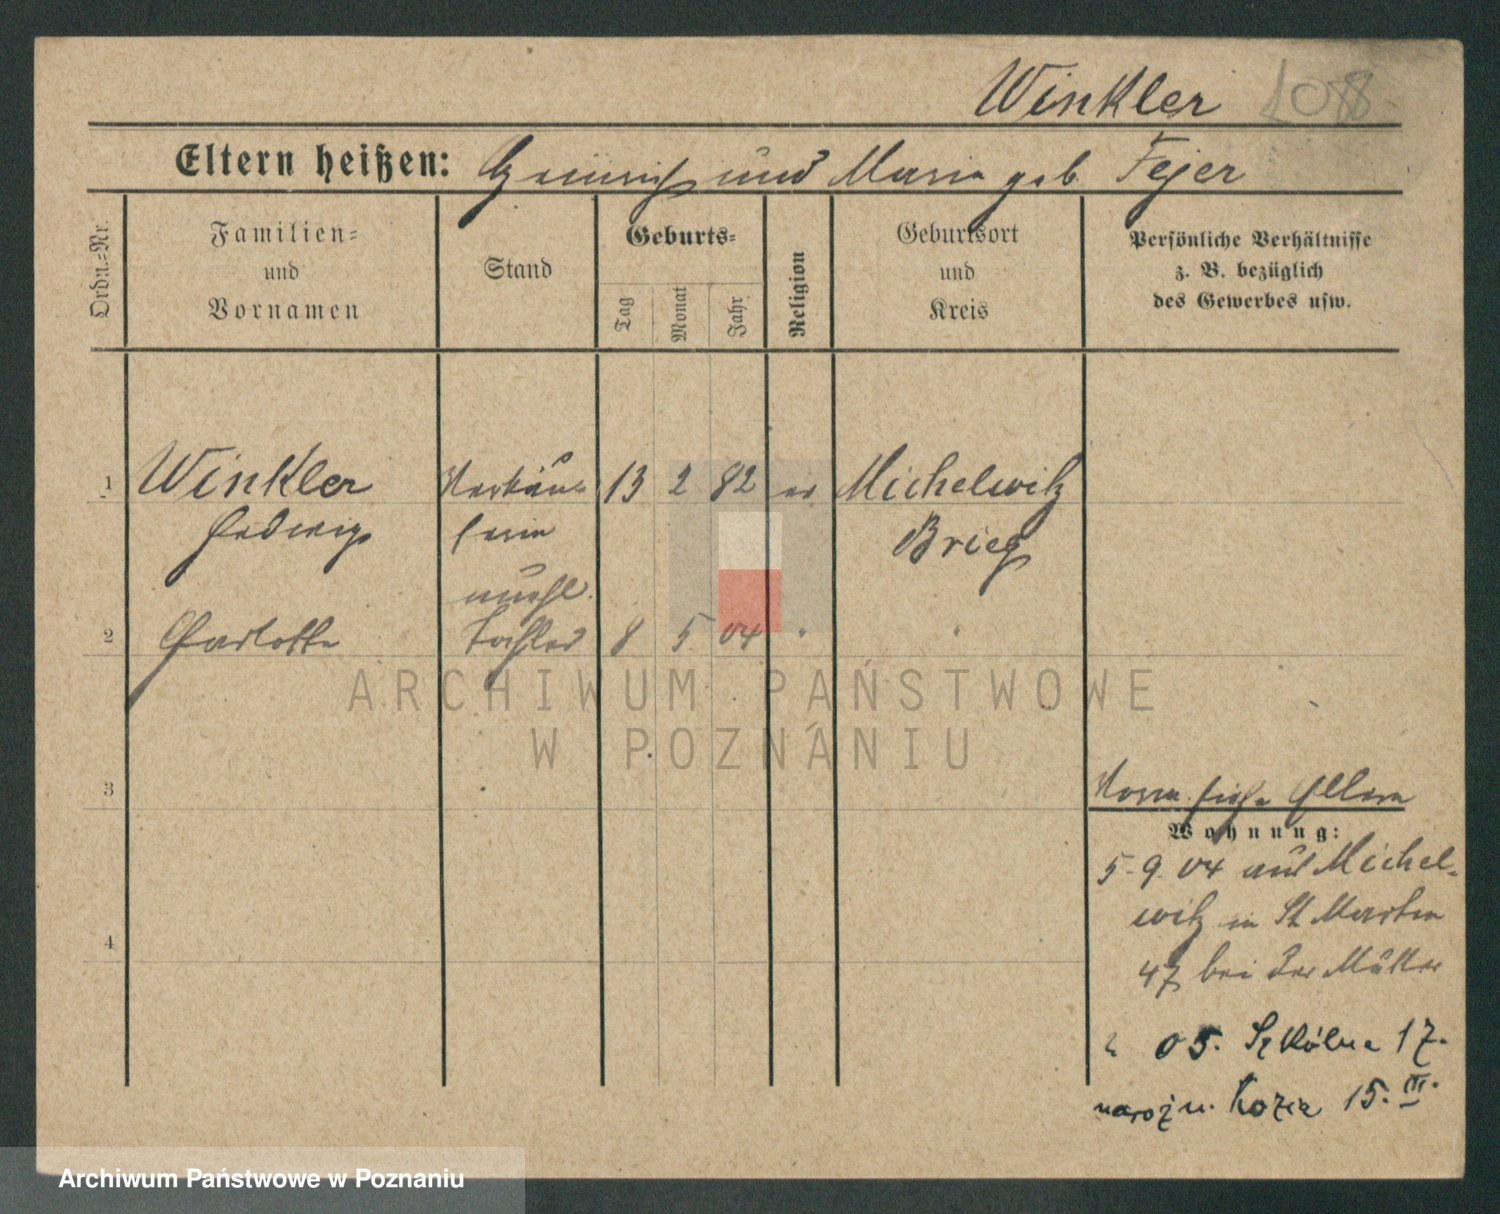 Winkler 1088
Eltern heißen: Heinrich und Maria geb. Fejer
Ordn.-Nr.
Familien-
und
Vornamen
Stand
Geburts-
Tag
Monat
Jahr
Religion
Geburtsort
und
Kreis
Persönliche Verhältnisse
z. B. bezüglich
des Gewerbes usw.
1 Winkler Verkäu- 13 2 82 ev Michelwitz
Hedwig ferin Brieg
unehl.
2 Charlotte Tochter 8 5 04 " "
ARCHIWUM PAŃSTWOWE
W POZNANIU
3
Vorm. siehe Eltern
Wohnung:
5. 9. 04 aus Michel-
witz in St Martin
4
47 bei Müller
05. Szkólna 17.
narożn. Kozia 15. III.
Archiwum Państwowe w Poznaniu